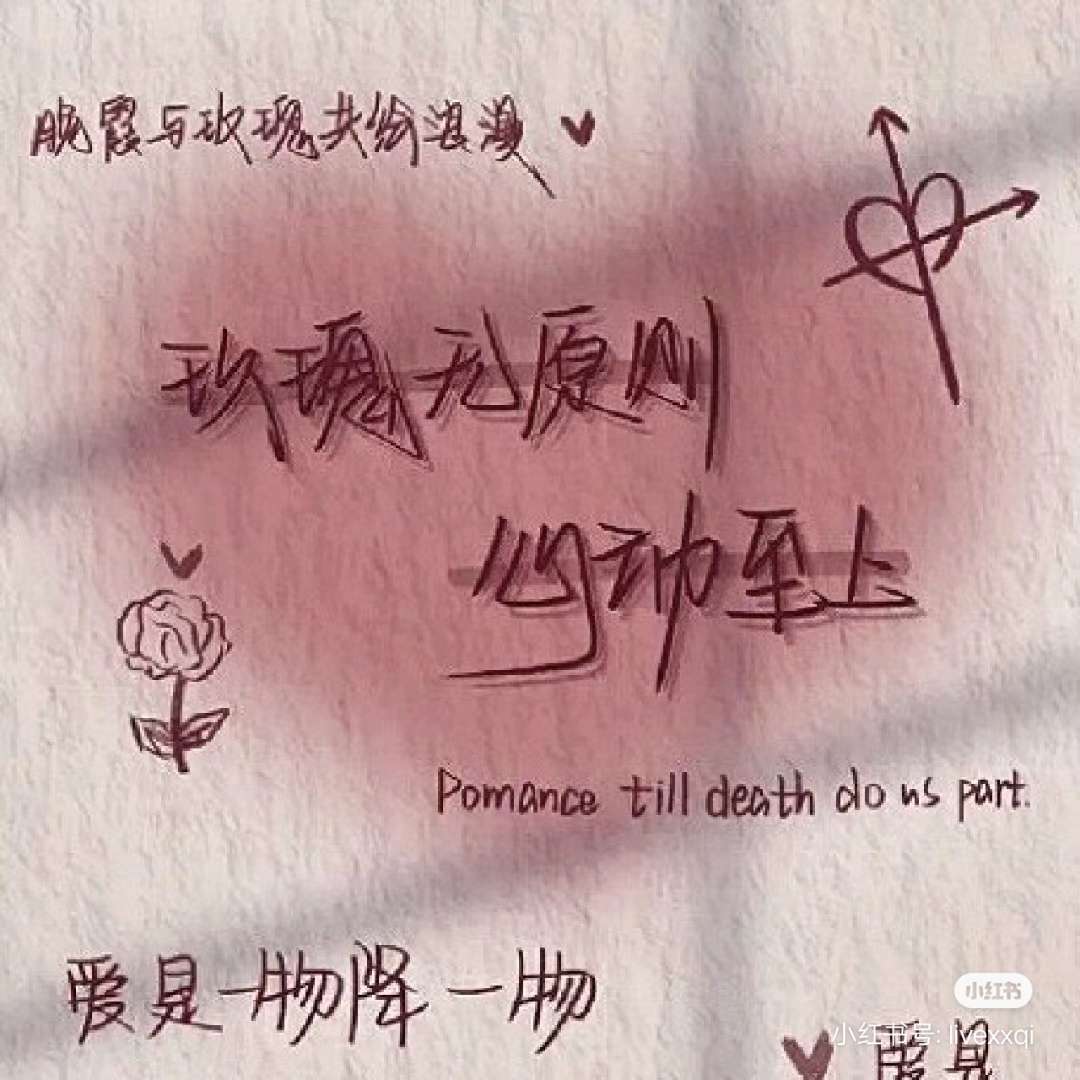 晚霞与玫瑰共绘浪漫
玫瑰无原则
心动至上
Pomance till death do us part.
爱是一物降一物
小红书
小红书号: livexxqi
爱是